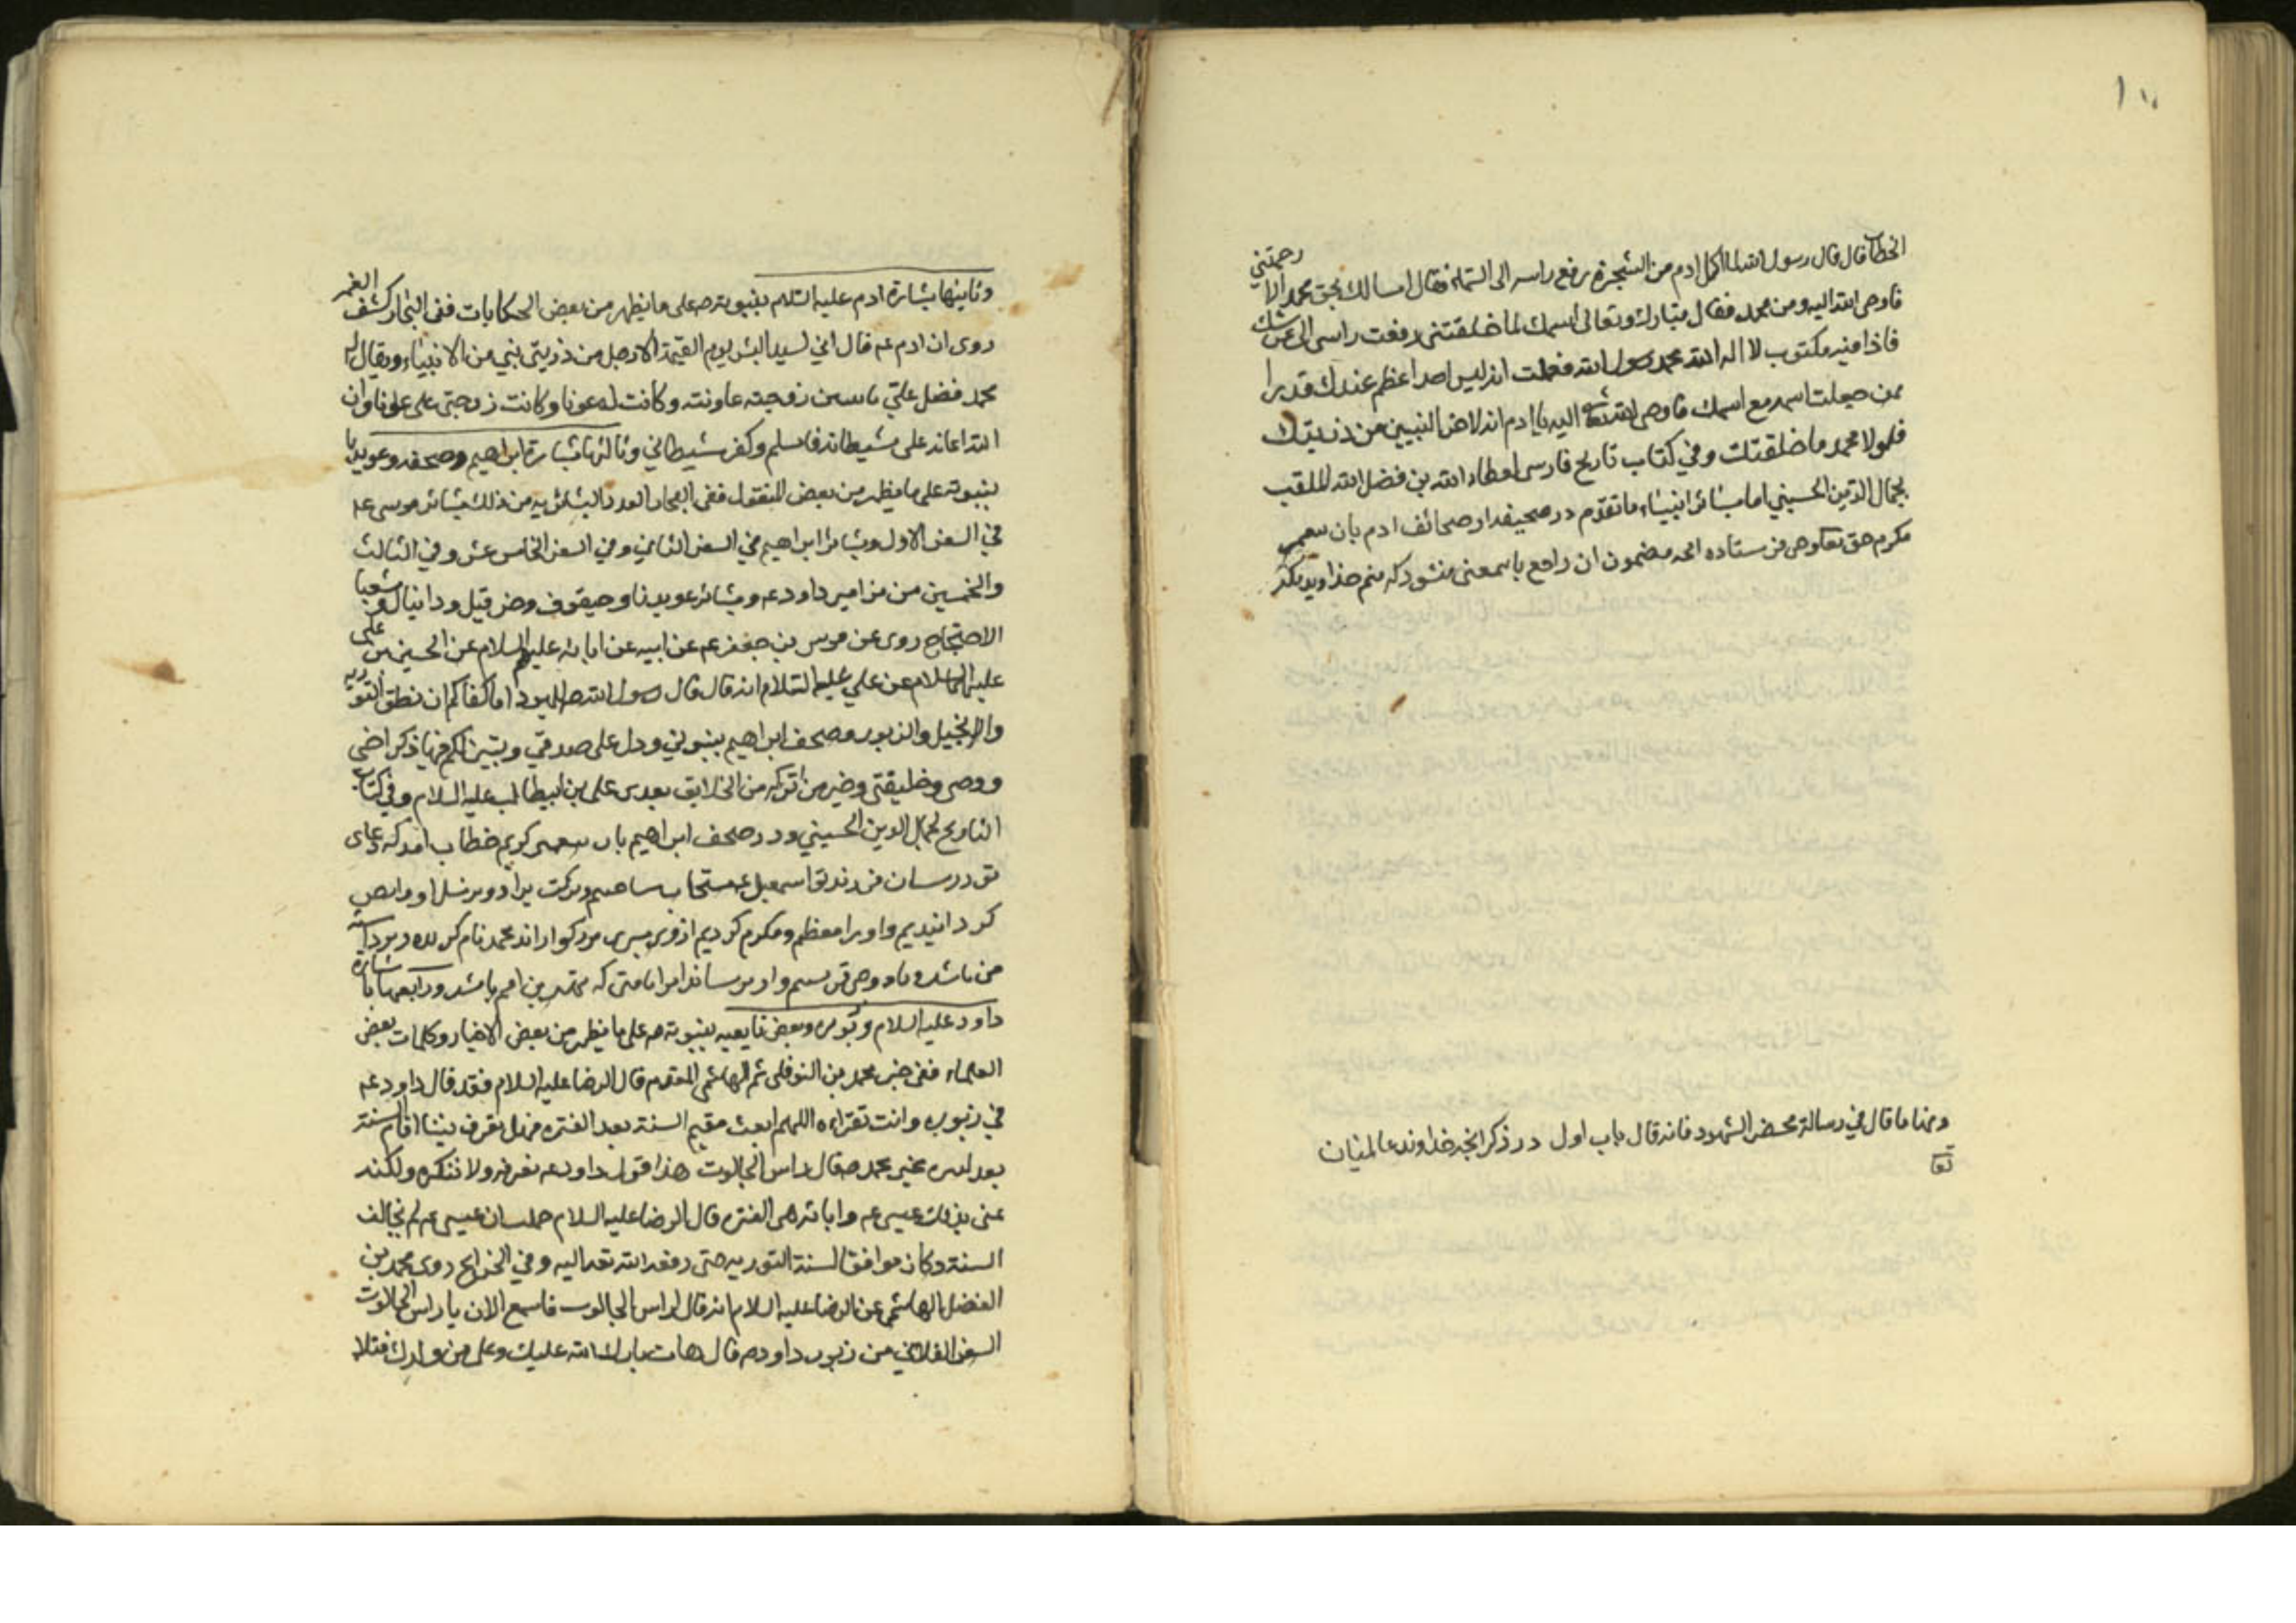 الخطاب قال قال رسول الله لما اكل ادم من الشجرة رفع راسه الى السماء فقال اسالك بحق محمد الا رحمتني
فاوحى الله اليه ومن محمد فقال تبارك وتعالى اسمك لما خلقتني رفعت راسى الى عرشك
فاذا فيه مكتوب لا اله الا الله محمد رسول الله فعلمت انه ليس احد اعظم عندك قدرا
ممن جعلت اسمه مع اسمك فاوحى الله اليه يا ادم انه لاخر النبيين من ذريتك
فلولا محمد ما خلقتك وفي كتاب تاريخ فارسى لعطاء الله بن فضل الله الملقب
بجمال الدين الحسيني اما بشائر انبياء ماتقدم در صحيفه از صحائف ادم بان
مكرم حق وحى فرستاده انچه مضمون ان راجع باسمعنى ميشود كه منم خداوند
ومنها ما قال في رسالة محضر الشهود فانه قال باب اول در ذكر انچه خداوند عالميان
تعا
وثانيها بشارة ادم عليه السلام بنبوته ص على ما يظهر من بعض الحكايات ففى البحار كشف الغمه
روى ان ادم ع قال اني لسيد البشر يوم القيمة الا رجل من ذريتى نبي من الانبياء ويقال له
محمد فضل علي باثنين زوجته عاونته وكانت له عونا وكانت زوجتى على عونا وان
الله اعانه على شيطانه فاسلم وكفر شيطاني وثالثها بشارة ابراهيم وصحفه وعويديا
بنبوته على ما يظهر من بعض النقول ففى البحار العدد البشائر به من ذلك بشائر موسى ع
في السفر الاول وبشائر ابراهيم في السفر الثاني وفي السفر الخامس عشر وفي الثالث
والخمسين من مزامير داود ع وبشائر عويديا وحيقوق وحزقيل ودانيال وشعيا
الاحتجاج روى عن موسى بن جعفر ع عن ابيه عن ابائه عليهم السلام عن الحسين بن على
عليهما السلام عن علي عليه السلام انه قال قال رسول الله ص لليهود اما كفاكم ان نطق التوريه
والانجيل والزبور وصحف ابراهيم بنبوتي ودل على صدقي وبين لكم فيها ذكر اخى
ووصى وخليفتى وخير من اتركه من الخلايق بعدى على بن ابيطالب عليه السلام وفى كتاب
التاريخ لجمال الدين الحسيني ودر صحف ابراهيم بان كريم خطاب امد كه دعاى
تو در سان فرزند تو اسمعيل مستجاب ساختيم وبركت برا و وبر نسل او
كردانيديم واو را معظم ومكرم كرديم از وى پسرى بزركوار اند محمد نام كه
من باشد وباو وحى فرستم واو برساند امرا بامتى كه بهترين امم باشد ورابعها بشارة
داود عليه السلام وزبوره وبعض تابعيه بنبوته ص على ما يظهر من بعض الاخبار وكلمات بعض
العلماء ففى خبر محمد بن النوفلى ثم الهاشمي المتقدم قال الرضا عليه السلام فقد قال داود ع
في زبوره وانت تقراءه اللهم ابعث مقيم السنة بعد الفتره فهل تعرف نبيا اقام السنة
بعد الفتره غير محمد ص قال راس الجالوت هذا قول داود ع نعرفه ولا ننكره ولكنه
عنى بذلك عيسى ع وايامه هى الفتره قال الرضا عليه السلام جهلت ان عيسى ع لم يخالف
السنة وكان موافقا لسنة التوريه حتى رفعه الله تعه اليه وفي الخرايج روى محمد بن
الفضل الهاشمى عن الرضا عليه السلام انه قال لراس الجالوت فاسمع الان يا راس الجالوت
السفر الفلاني من زبور داود ع قال هات بارك الله عليك وعلى من ولدك فتلا